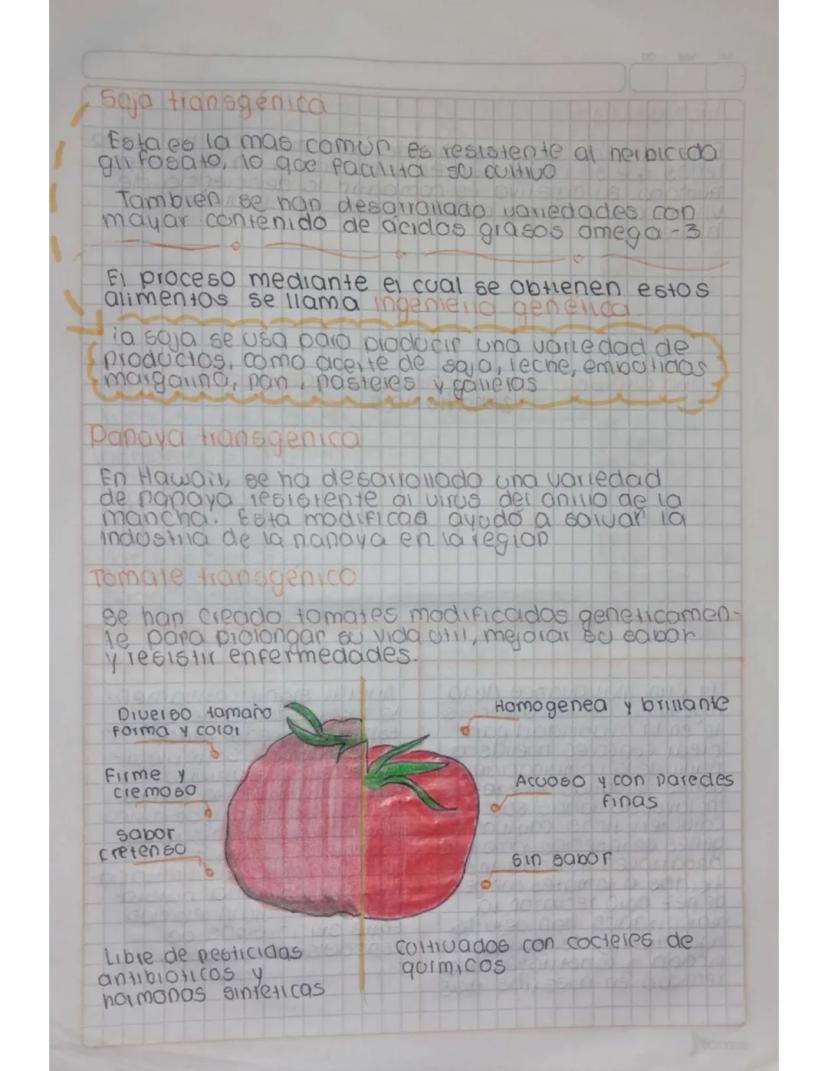 Soja transgénica
Esta es la mas común es resistente al herbicida
glifosato, lo que facilita su cultivo
También se han desarrollado variedades con
mayar contenido de ácidos grasos omega-3
El proceso mediante el cual se obtienen estos
alimentos se llama ingeniería genética
la soja se usa para producir una variedad de
productos, como aceite de soja, leche, embotidas
margarina, pan, pasteles y galletas
Papaya transgénica
En Hawaii, se ha desarrollado una variedad
de papaya resistente al virus del anillo de la
mancha. Esta modificaa ayudó a salvar la
industria de la papaya en la region
Tomate transgénico
Se han creado tomates modificados geneticamen-
te para prolongar su vida útil, mejorar su sabor
y resistir enfermedades.
Diverso tamaño
forma y color
Firme y
cremoso
sabor
cretenso
Libre de pesticidas
antibioticos y
hormonas sinteticas
Homogenea y brillante
Acuoso y con paredes
finas
sin sabor
coltivados con cocteles de
quimicos